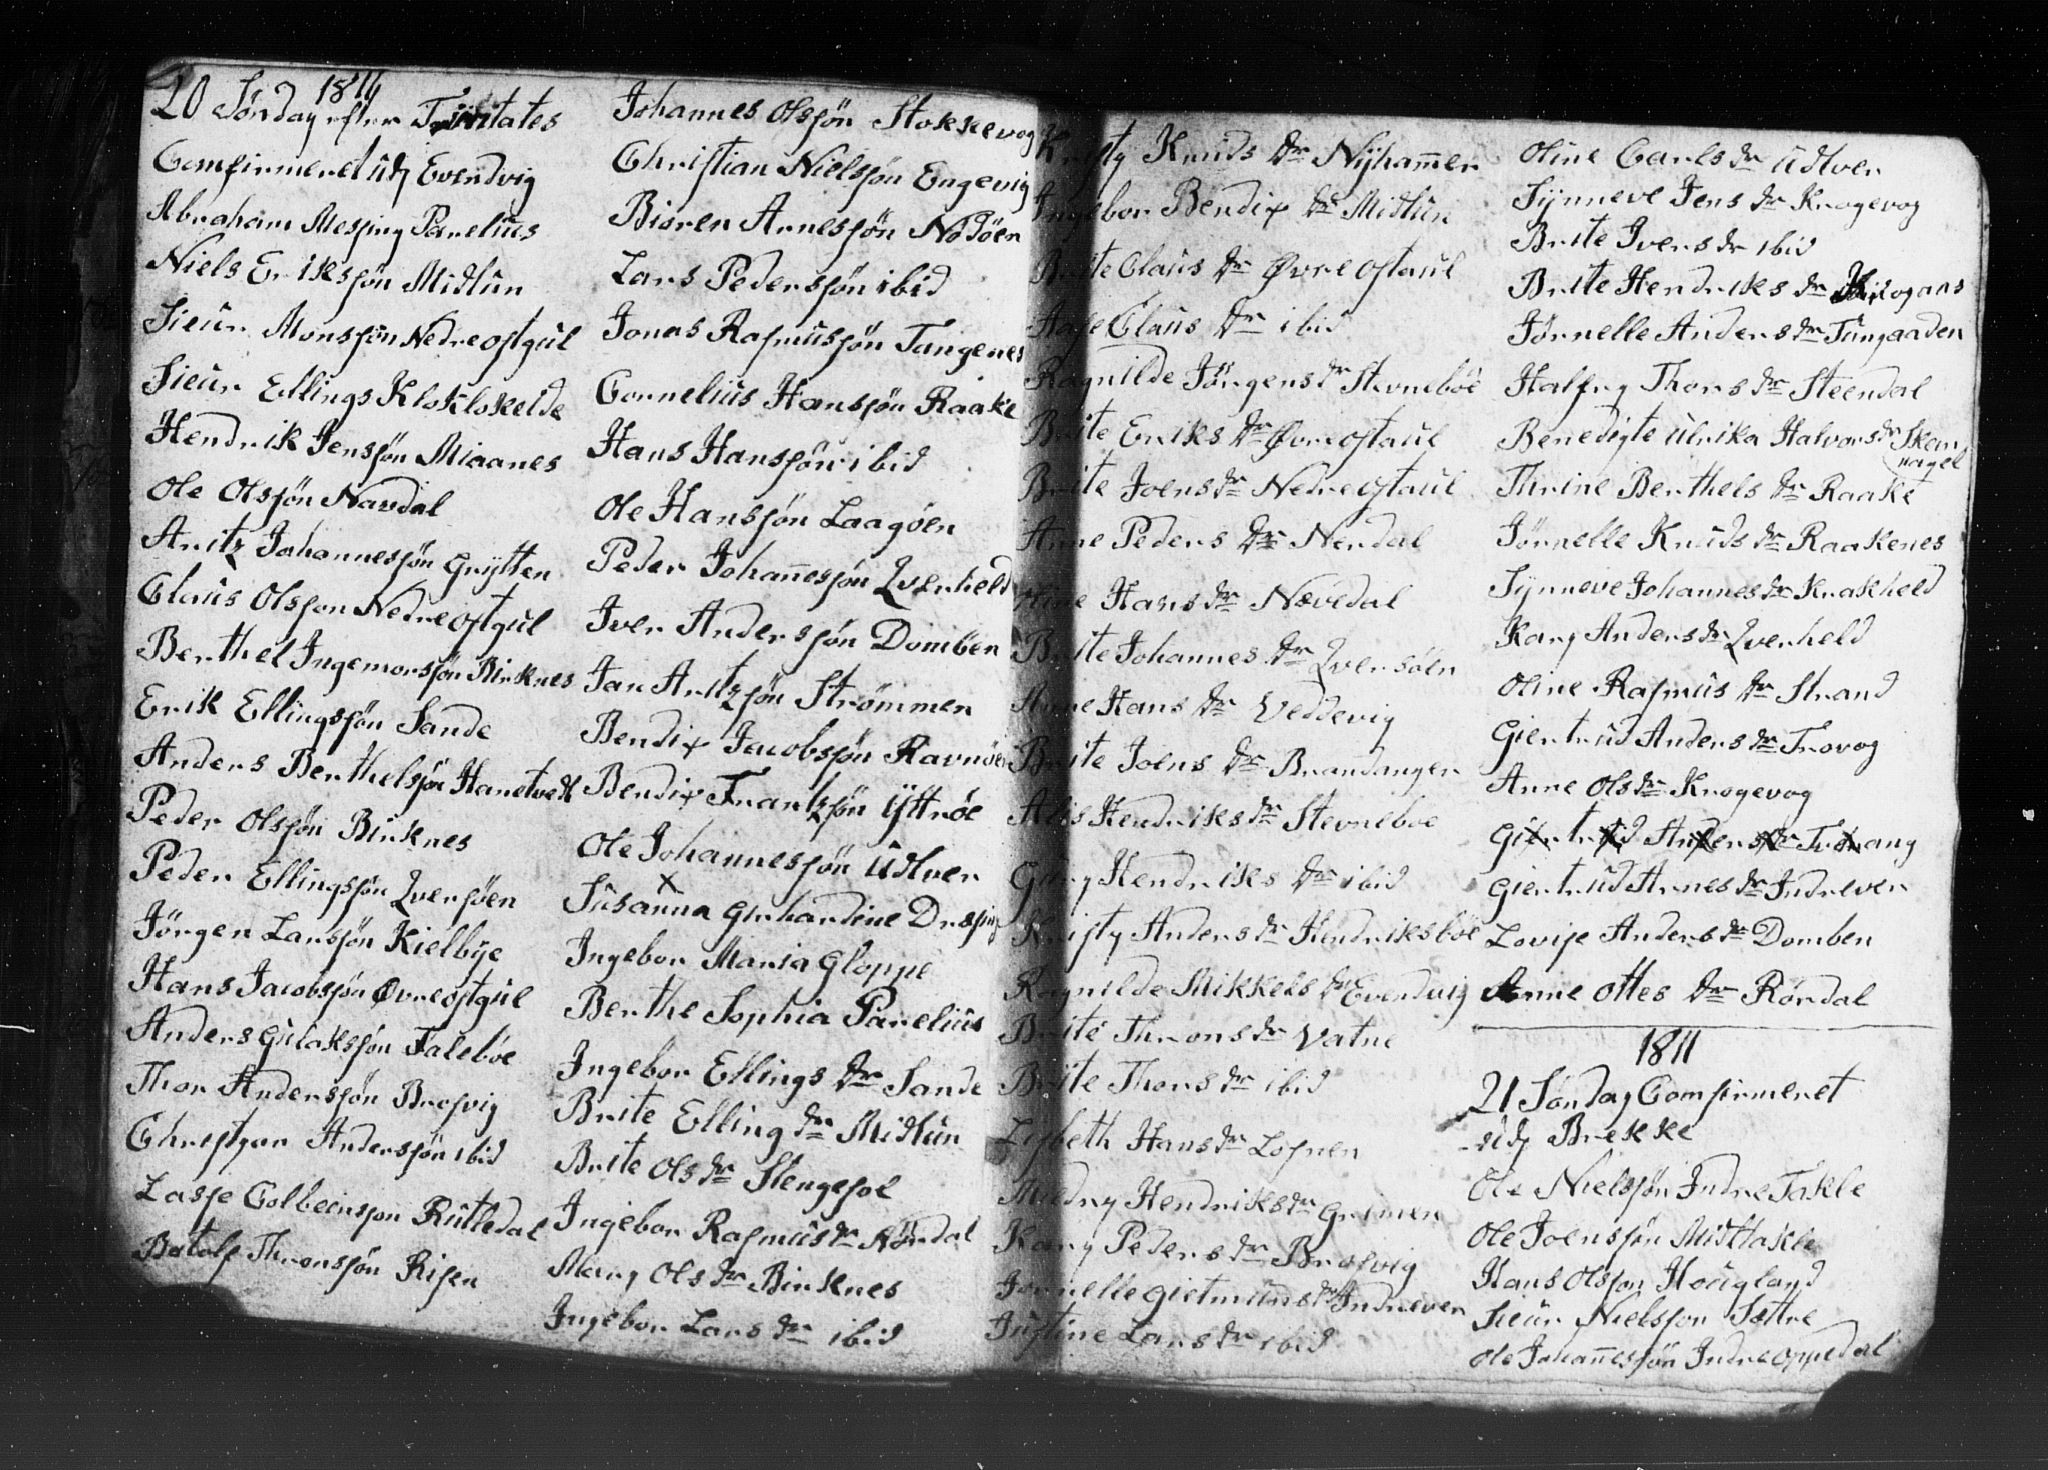 1811
20 Sønday efter Trinitates
Comfirmeret udj Evendvig
Abraham Messing Parelius
Niels Eriksøn Midtun
Sieur Monssøn Nedreostgul
Sieur Ellings Kloklokelde
Hendrik Jenssøn Miaanes
Ole Olssøn Navdal
Aritz Johannessøn Grytten
Claus Olsson Nedreostgul
Berthel Ingemorssøn Birknes
Erik Ellingssøn Sande
Anders Berthelssøn Hanetvedt
Peder Olssøn Birknes
Peder Ellingssøn Qversøen
Jørgen Larssøn Kielbye
Hans Jacobssøn Øvreostgul
Anders Gulakssøn Falebøe
Thor Anderssøn Brosvig
Christian Anderssøn ibid
Lasse Colbeenson Rutledal
Botolf Thronssøn Risen
Johannes Olssøn Stokkevog
Christian Nielssøn Engevig
Bioren Arnessøn Nodøen
Lars Pederssøn ibid
Jonas Rasmussøn Tangenes
Cornelius Hanssøn Raake
Hans Hanssøn ibid
Ole Hanssøn Laagøen
Peder Johannessøn Qvenheld
Iver Anderssøn Domben
Jan Aritzsøn Strømmen
Bendix Jacobssøn Ravnøen
Bendix Frantzsøn Yttrøe
Ole Johannessøn Udtver
x
Susanna Gerhardine
Ingebor Maria Gloppe
Berthe Sophia Parelius
Ingebor Ellings dr Sande
Brite Elling dr Midtun
Brite Ols dr Stengesol
Ingebor Rasmus dr Nørdal
Mary Ols dr Birknes
Ingebor Lars dr ibid
Kristy Knuds dr Nyhammer
Ingebor Bendix dr Midtun
Brite Claus dr Øvreostgul
Aase Claus dr ibid
Ragnilde Jørgens dr Stevnebøe
Brite Eriks dr Øvreostgul
Brite Joens dr Nedreostgul
Anne Peders dr Nerdal
Oline Hans dr Nævedal
Brite Johannes dr Qversøen
Anne Hans dr Veddevig
Brite Joens dr Brandanger
Alis Hendriks dr Stevneboe
Gury Hendriks dr ibid
Kristy Anders dr Hendriksbøe
Ragnilde Mikkels dr Evendvig
Brite Throns dr Vatne
Brite Thors dr ibid
Lisbeth Hans dr Losnen
Mildry Hendriks dr Grimen
Kary Peders dr Brosvig
Jørnelle Gietmunds dr Indrever
Justine Lars dr ibid
Oline Carls dr Udtver
Synneve Jens dr Krogevog
Brite Ivers dr ibid
Brite Hendriks dr
Jørnelle Anders dr Tungaaden
Halfry Thors dr Steendal
Benedigte Ulrika Halvors dr Sker
nagel
Thrine Berthels dr Raake
Jørnelle Knuds dr Raakenes
Synneve Johannes dr Knakheld
Kary Anders dr Qvenheld
Oline Rasmus dr Strand
Giertrud Anders dr Trovog
Anne Ols dr Krogevog
Giertrud Anders dr
Giertrud Arnes dr Indrever
Lovise Anders dr Domben
Anne Ottes dr Rørdal
1811
21 Sønday Comfirmeret
udj Brekke
Ole Nielssøn Indre Takle
Ole Joenssøn Midttakle
Hans Olsson Hougland
Sieur Nielsson Sættre
Ole Johannessøn Indreoppedal